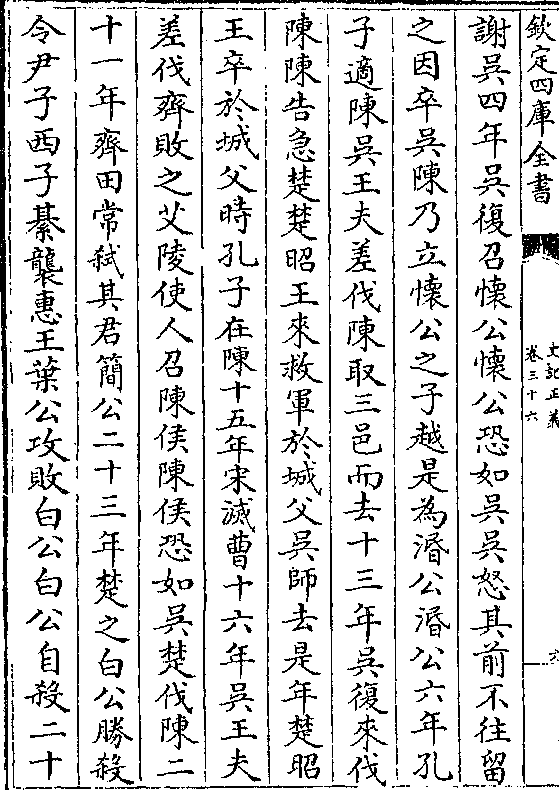 欽定四庫全書
史記正義
卷三十六
謝吳四年吳復召懷公懷公恐如吳吳怒其前不往留
之因卒吳陳乃立懷公之子越是為湣公湣公六年孔
子適陳吳王夫差伐陳取三邑而去十三年吳復來伐
陳陳告急楚楚昭王來救軍於城父吳師去是年楚昭
王卒於城父時孔子在陳十五年宋滅曹十六年吳王夫
差伐齊敗之艾陵使人召陳侯陳侯恐如吳楚伐陳二
十一年齊田常弑其君簡公二十三年楚之白公勝殺
令尹子西子綦襲惠王葉公攻敗白公白公自殺二十